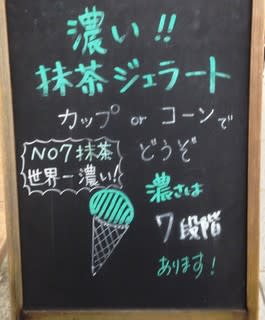 濃い!!
抹茶ジェラート
カップ or コーンで
どうぞ
NO7抹茶
世界一濃い!
濃さは
7段階
あります!